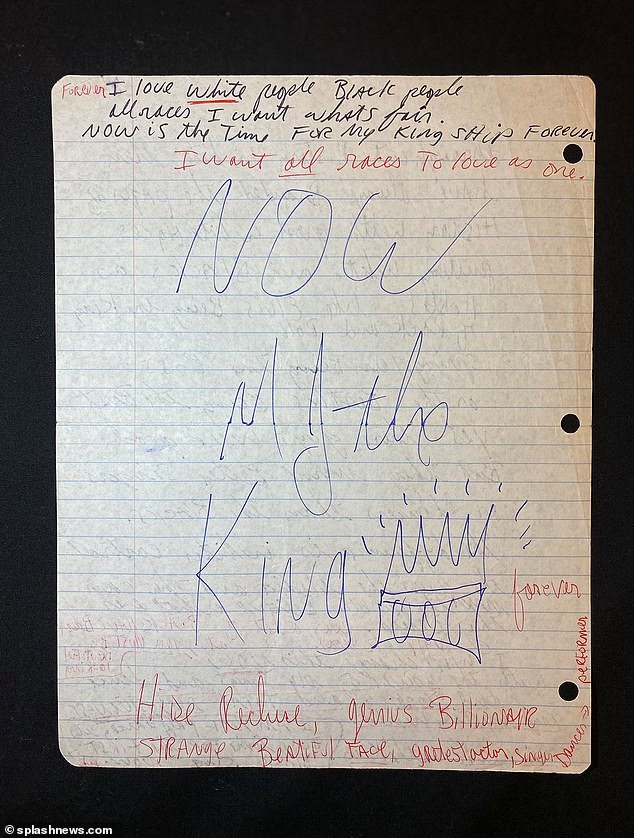 Forever I love White people Black people
all races I want whats fair.
NOW is the Time FOR My King ship FOREVER
I want all races To love as one.
NOW
MJ the
King
forever
PERFORMER
Hide Recluse, genius Billionaire
STRANGE Beatiful Face, gretest actor, singer Dancer
© splashnews.com